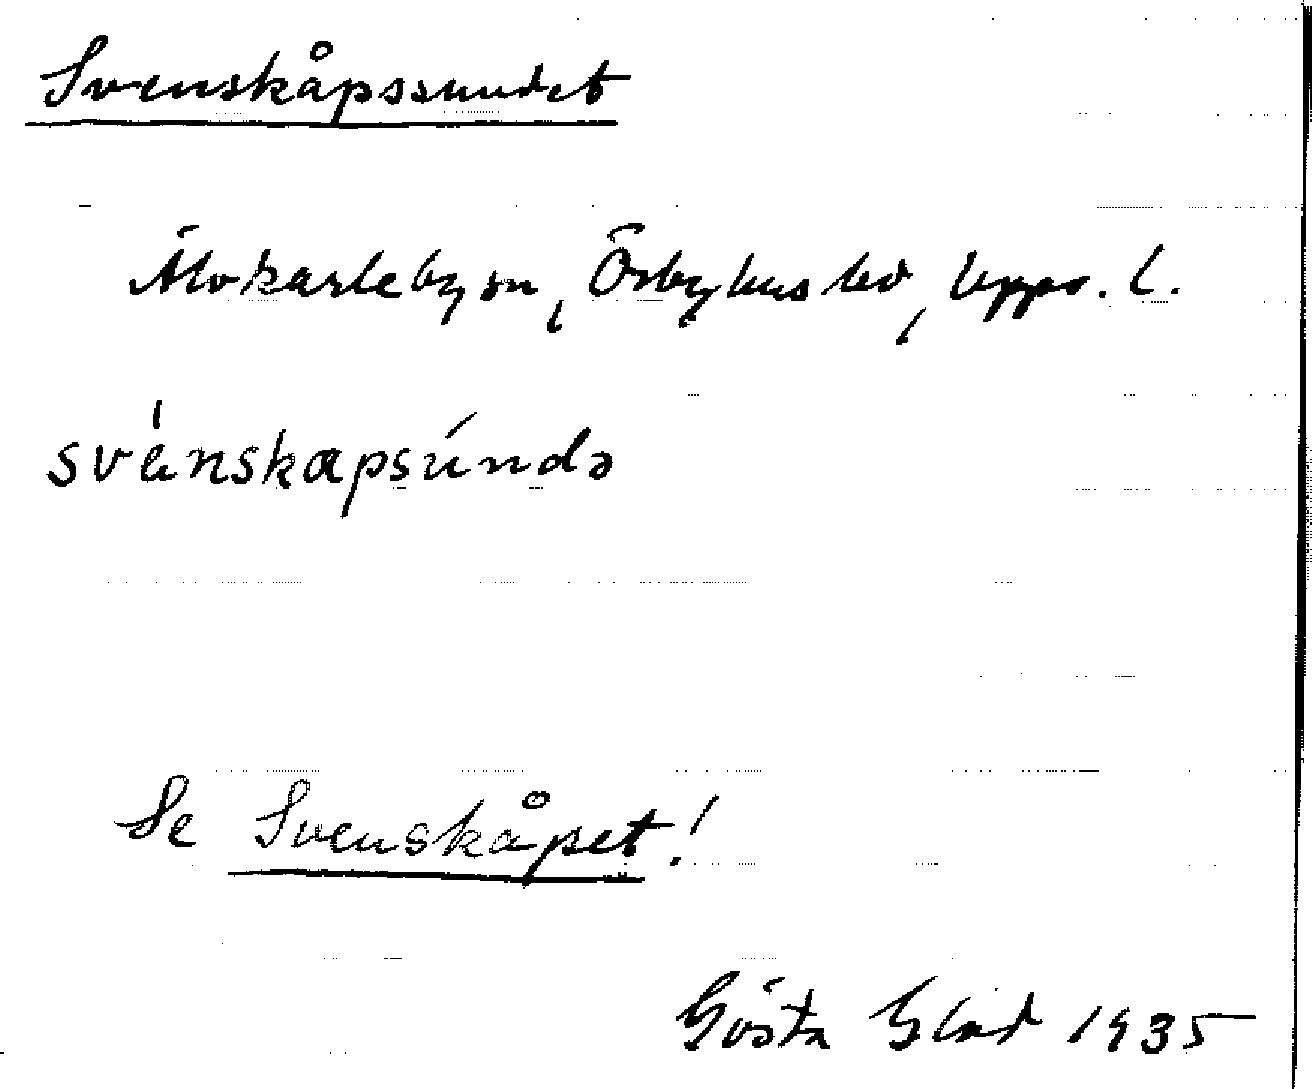 Svenskåpssundet
Älvkarleby sn, Örbyhus hd, Upps. l.
svänskapsúndə
Se Svenskåpet!
Gösta Blad 1935